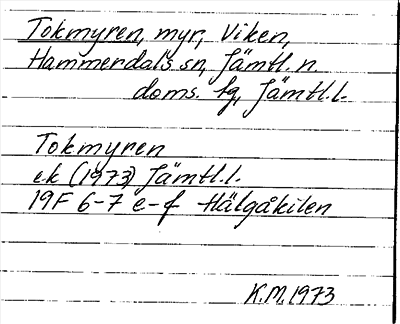 Tokmyren, myr, Viken,
Hammerdals sn, Jämtl. n.
doms. fg, Jämtl.l.
Tokmyren
ek (1973) Jämtl.l.
19F 6-7 e-f Hälgåkilen
K.M. 1973